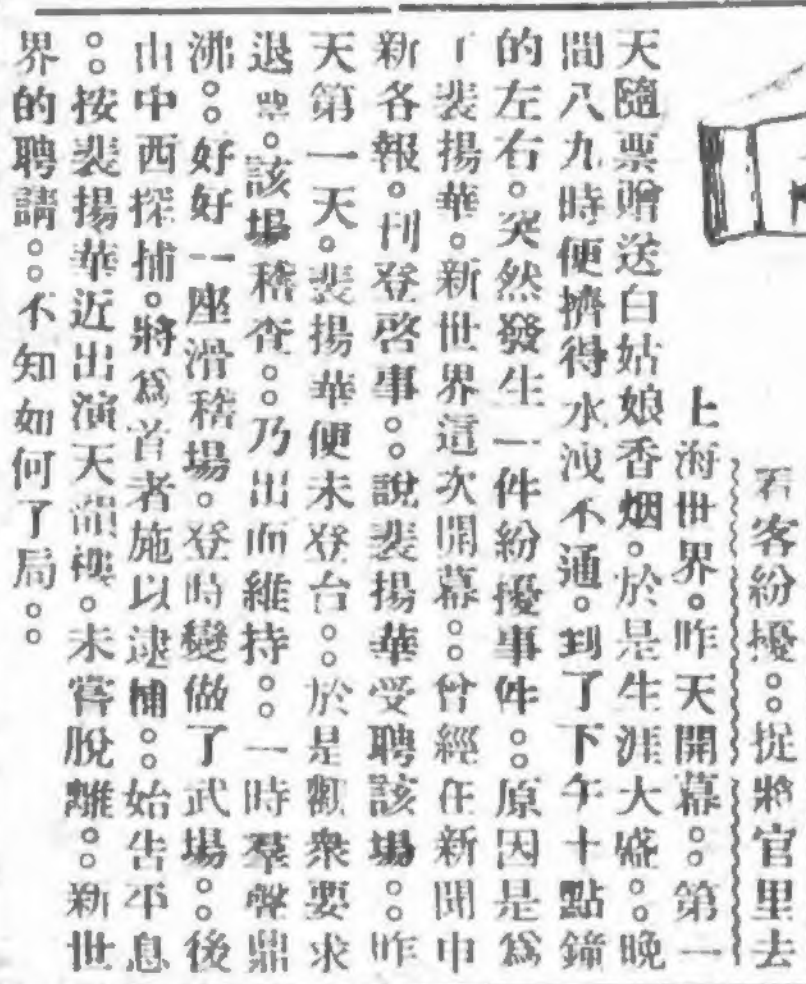 看客紛擾。。捉將官里去
上海世界。昨天開幕。。第一
天隨票贈送白姑娘香烟。於是生涯大盛。。晚
間八九時便擠得水洩不通。到了下午十點鐘
的左右。突然發生一件紛擾事件。。原因是爲
了裴揚華。新世界這次開幕。。曾經在新聞申
新各報。刊登啓事。。說裴揚華受聘該場。。昨
天第一天。裴揚華便未登台。。於是觀衆要求
退票。該場稽查。。乃出而維持。。一時羣聲鼎
沸。。好好一座滑稽場。登時變做了武場。。後
由中西探捕。將爲首者施以逮捕。。始告平息
。。按裴揚華近出演天韻樓。未嘗脫離。。新世
界的聘請。。不知如何了局。。